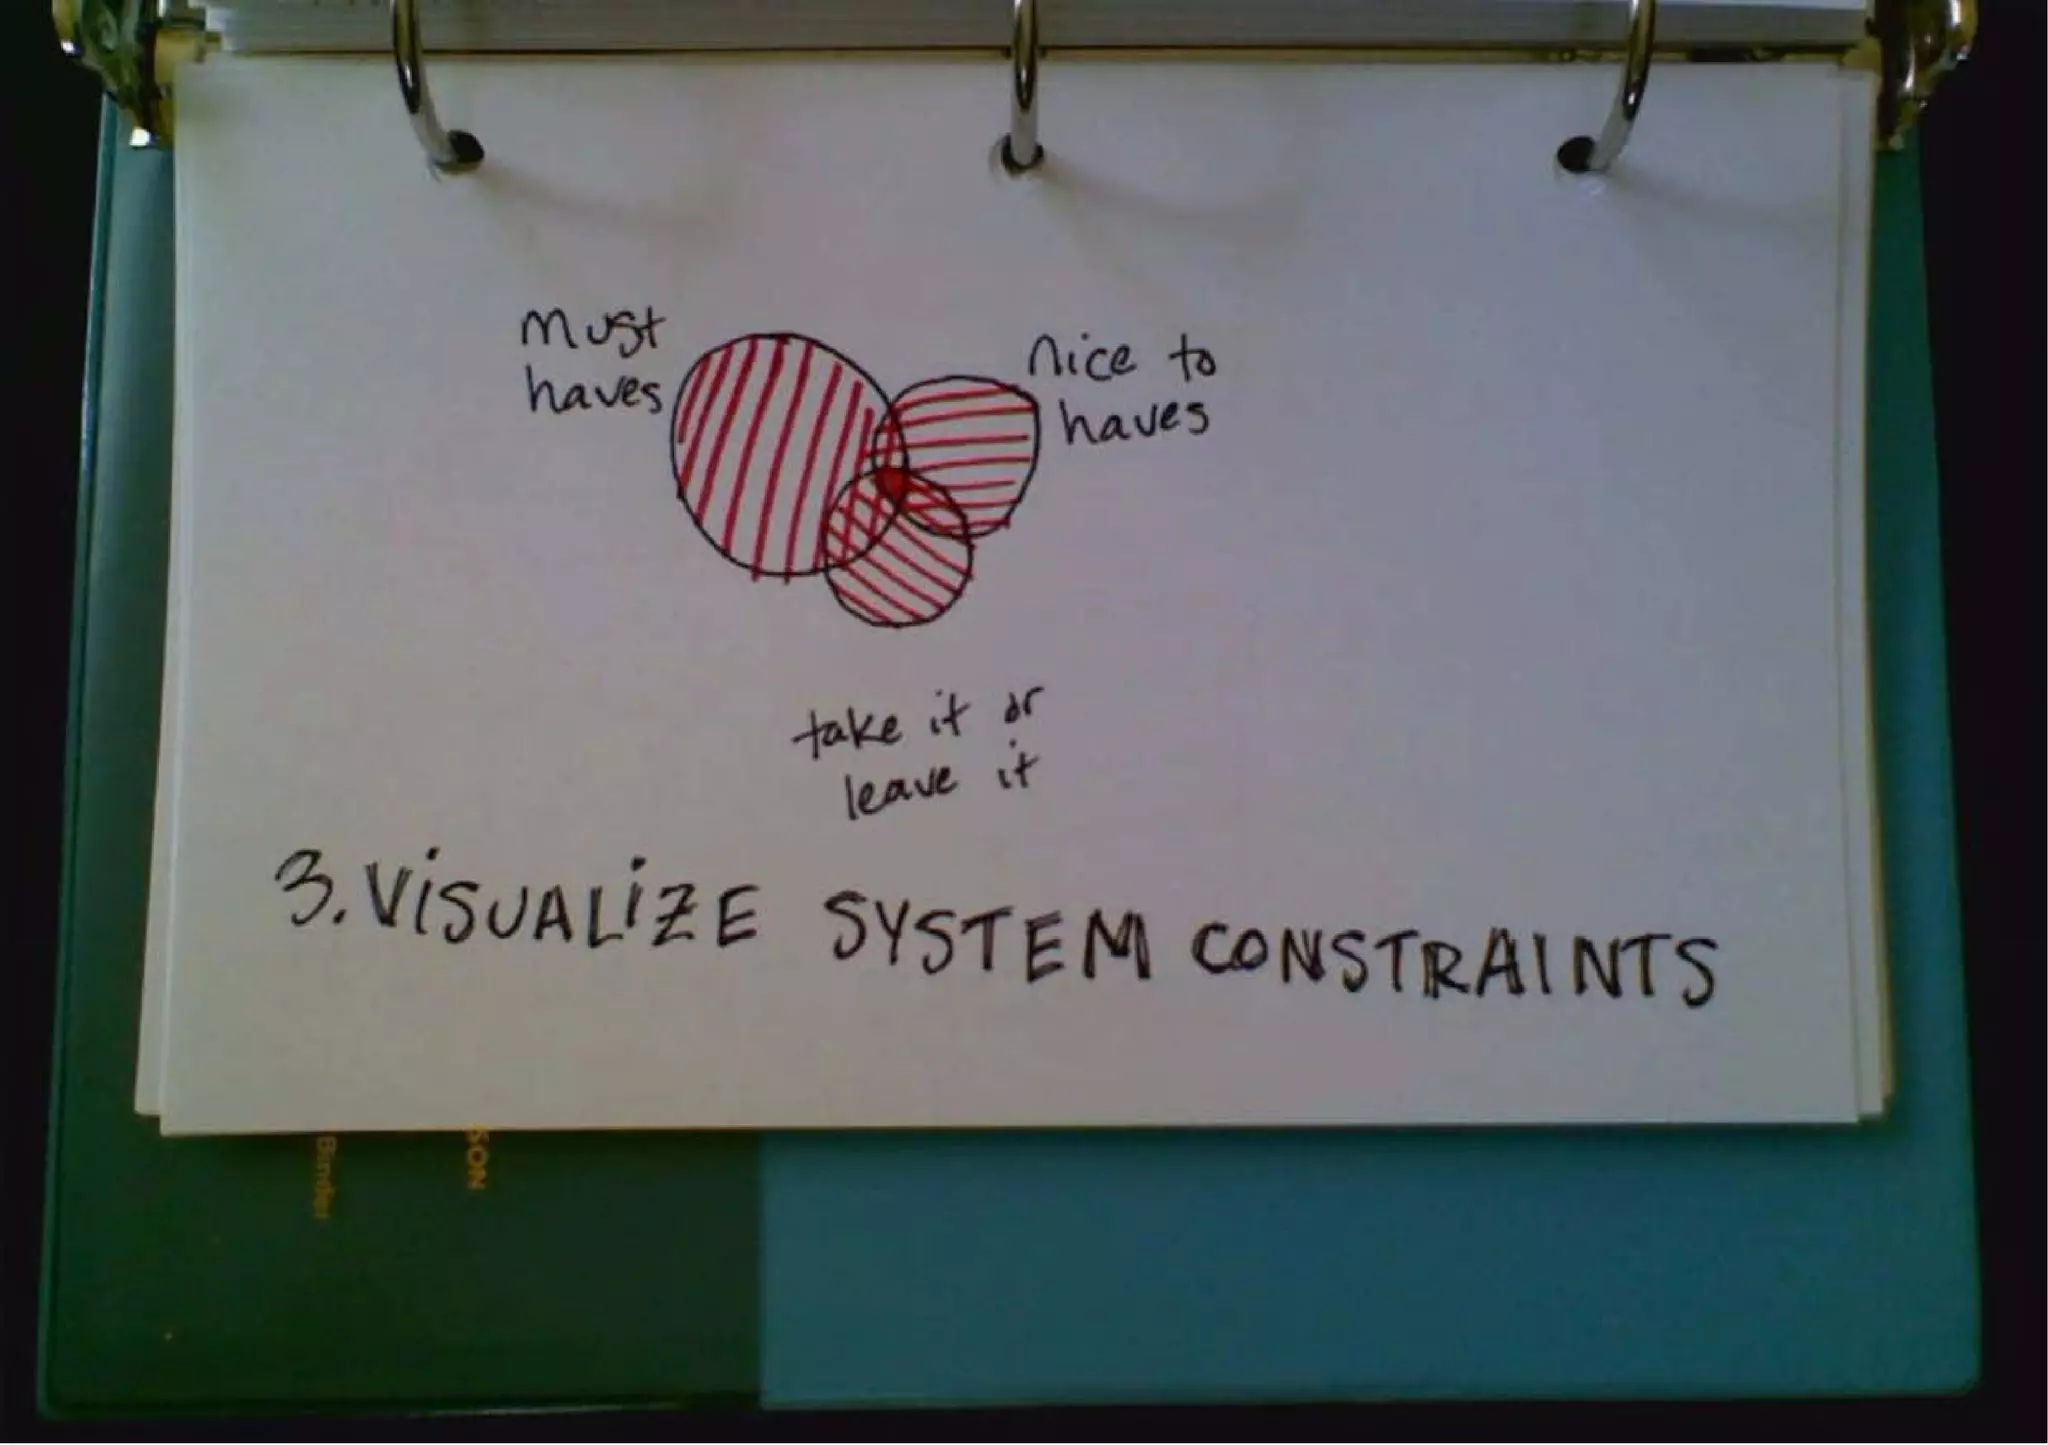 must
haves
nice to
haves
take it or
leave it
3. VISUALIZE SYSTEM CONSTRAINTS
SON
Binder